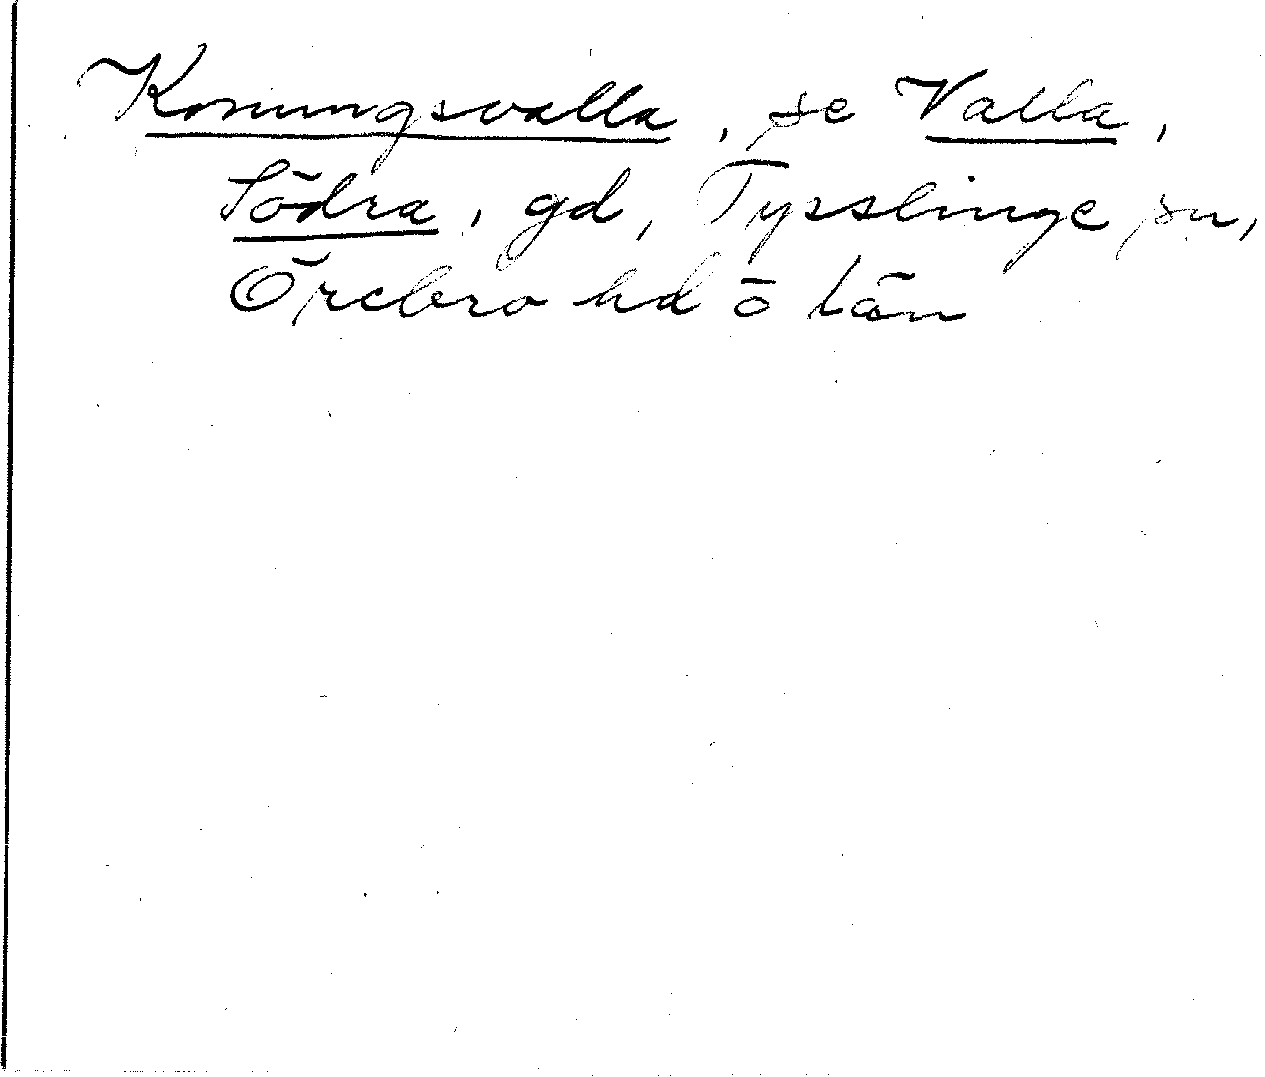 Konungsvalla, se Valla,
Södra, gd, Tysslinge sn,
Örebro hd o län